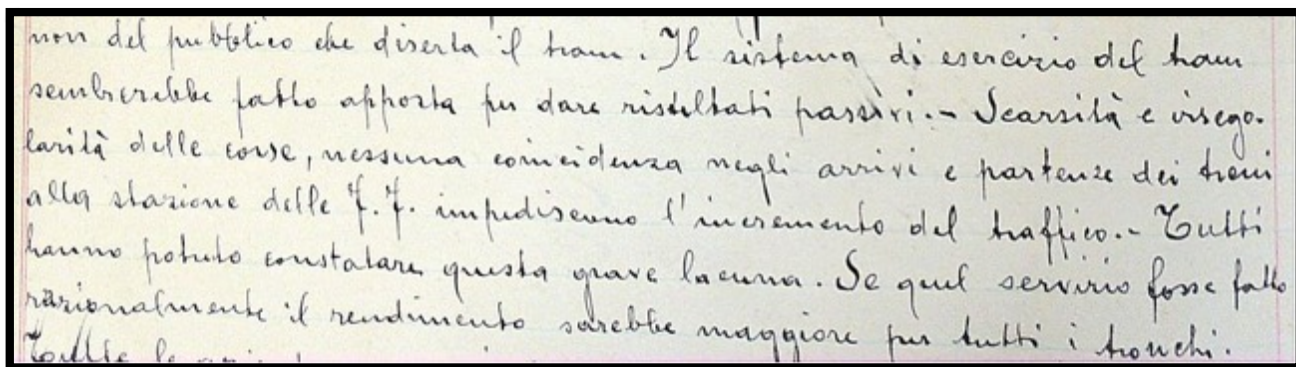 non del pubblico che diserta il tram. Il sistema di esercizio del tram
sembrerebbe fatto apposta per dare risultati passivi.- Scarsità e irrego-
larità delle corse, nessuna coincidenza negli arrivi e partenze dei treni
alla stazione delle F.F. impediscono l'incremento del traffico.- Tutti
hanno potuto constatare questa grave lacuna. Se quel servizio fosse fatto
razionalmente il rendimento sarebbe maggiore per tutti i tronchi.